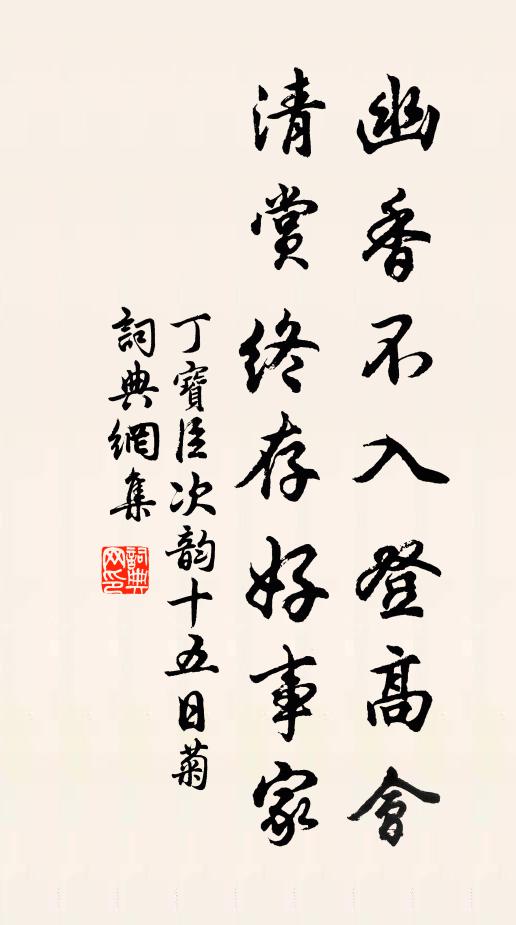 幽香不入登高會
清賞終存好事家
丁寶臣次韵十五日菊
詞典網集
詞典網印